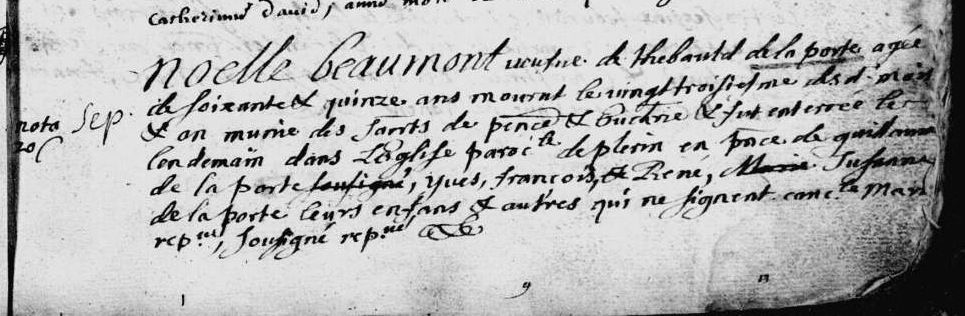 Catherinne david, anne
noelle beaumont veufue de thebauld de la porte agée
de soixante & quinze ans mourut le vingt troisiesme des d. mois
nota Sep. & an munie des sacrts de pence & Euchrie & fut enterrée le
lendemain dans L'Eglise paroclle de plerin en pnce de guillaume
de la porte sousigné, yves, francois, & René, Marie Susanne
de la porte leurs enfans & autres qui ne signent
, sousigné